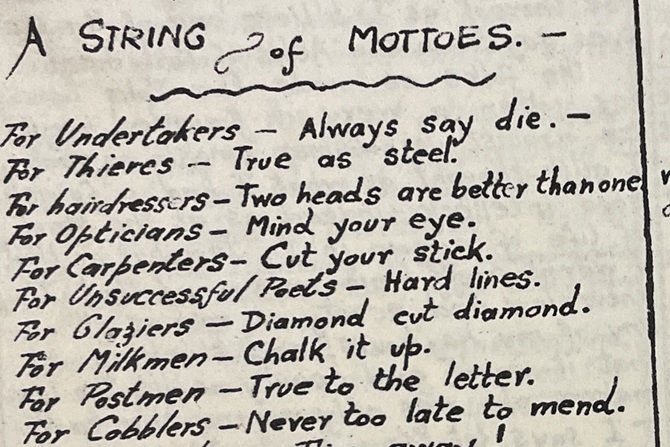 A STRING of MOTTOES. —
For Undertakers — Always say die. —
For Thieves — True as steel.
For hairdressers — Two heads are better than one.
For Opticians — Mind your eye.
For Carpenters — Cut your stick.
For Unsuccessful Poets — Hard lines.
For Glaziers — Diamond cut diamond.
For Milkmen — Chalk it up.
For Postmen — True to the letter.
For Cobblers — Never too late to mend.